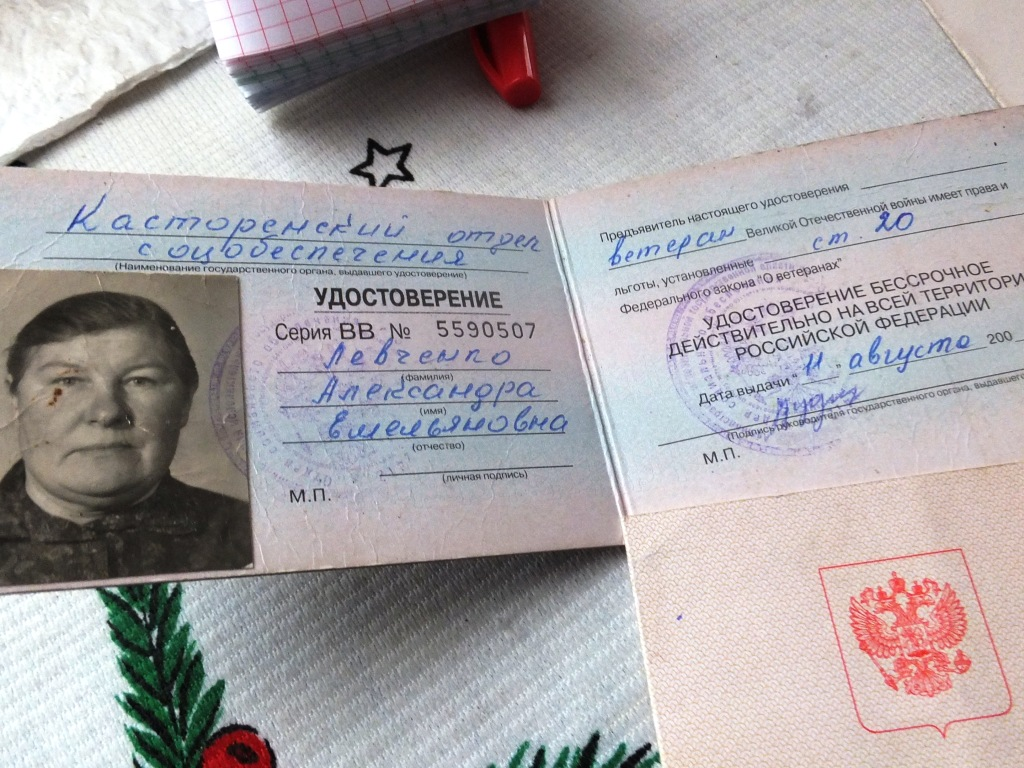 Касторенский отдел
соцобеспечения
(Наименование государственного органа, выдавшего удостоверение)
УДОСТОВЕРЕНИЕ
Серия ВВ № 5590507
Левченко
(фамилия)
Александра
(имя)
Емельяновна
(отчество)
(личная подпись)
М.П.
Предъявитель настоящего удостоверения
ветеран Великой Отечественной войны имеет права и
льготы, установленные ст. 20
Федерального закона "О ветеранах"
УДОСТОВЕРЕНИЕ БЕССРОЧНОЕ
ДЕЙСТВИТЕЛЬНО НА ВСЕЙ ТЕРРИТОРИИ
РОССИЙСКОЙ ФЕДЕРАЦИИ
Дата выдачи "11" августа 200
(Подпись руководителя государственного органа, выдавшего
М.П.